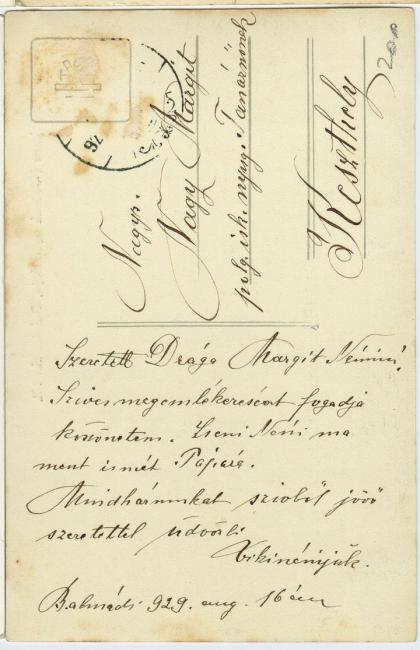 Nagys.
Nagy Margit
polg. isk. nyug. Tanárnőnek
Keszthely
200
76
Szeretett Drága Margit Néni!
Szives megemlékezését fogadja
köszönetem. Iseni Néni ma
ment ismét Pápára.
Mindhármukat szivből jövő
szeretettel üdvözli
Vikinénjük.
Balmádi 929. aug. 16 án